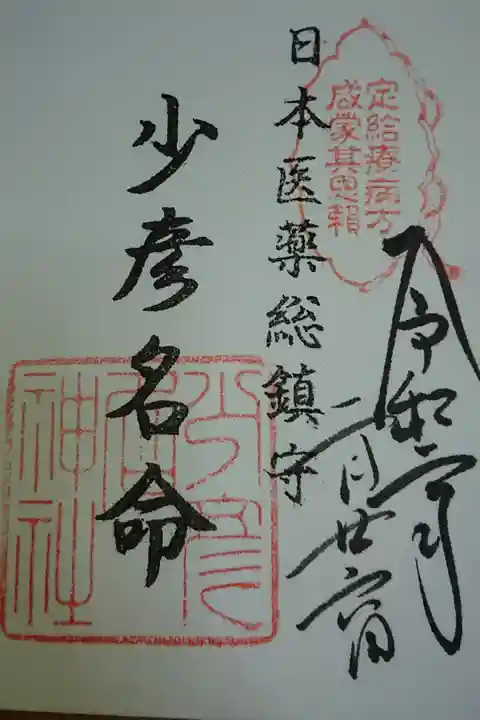 令和二年
二月廿六日
定給療病方
咸蒙其恩頼
日本医薬総鎮守
少彦名命
少彦
名
神社